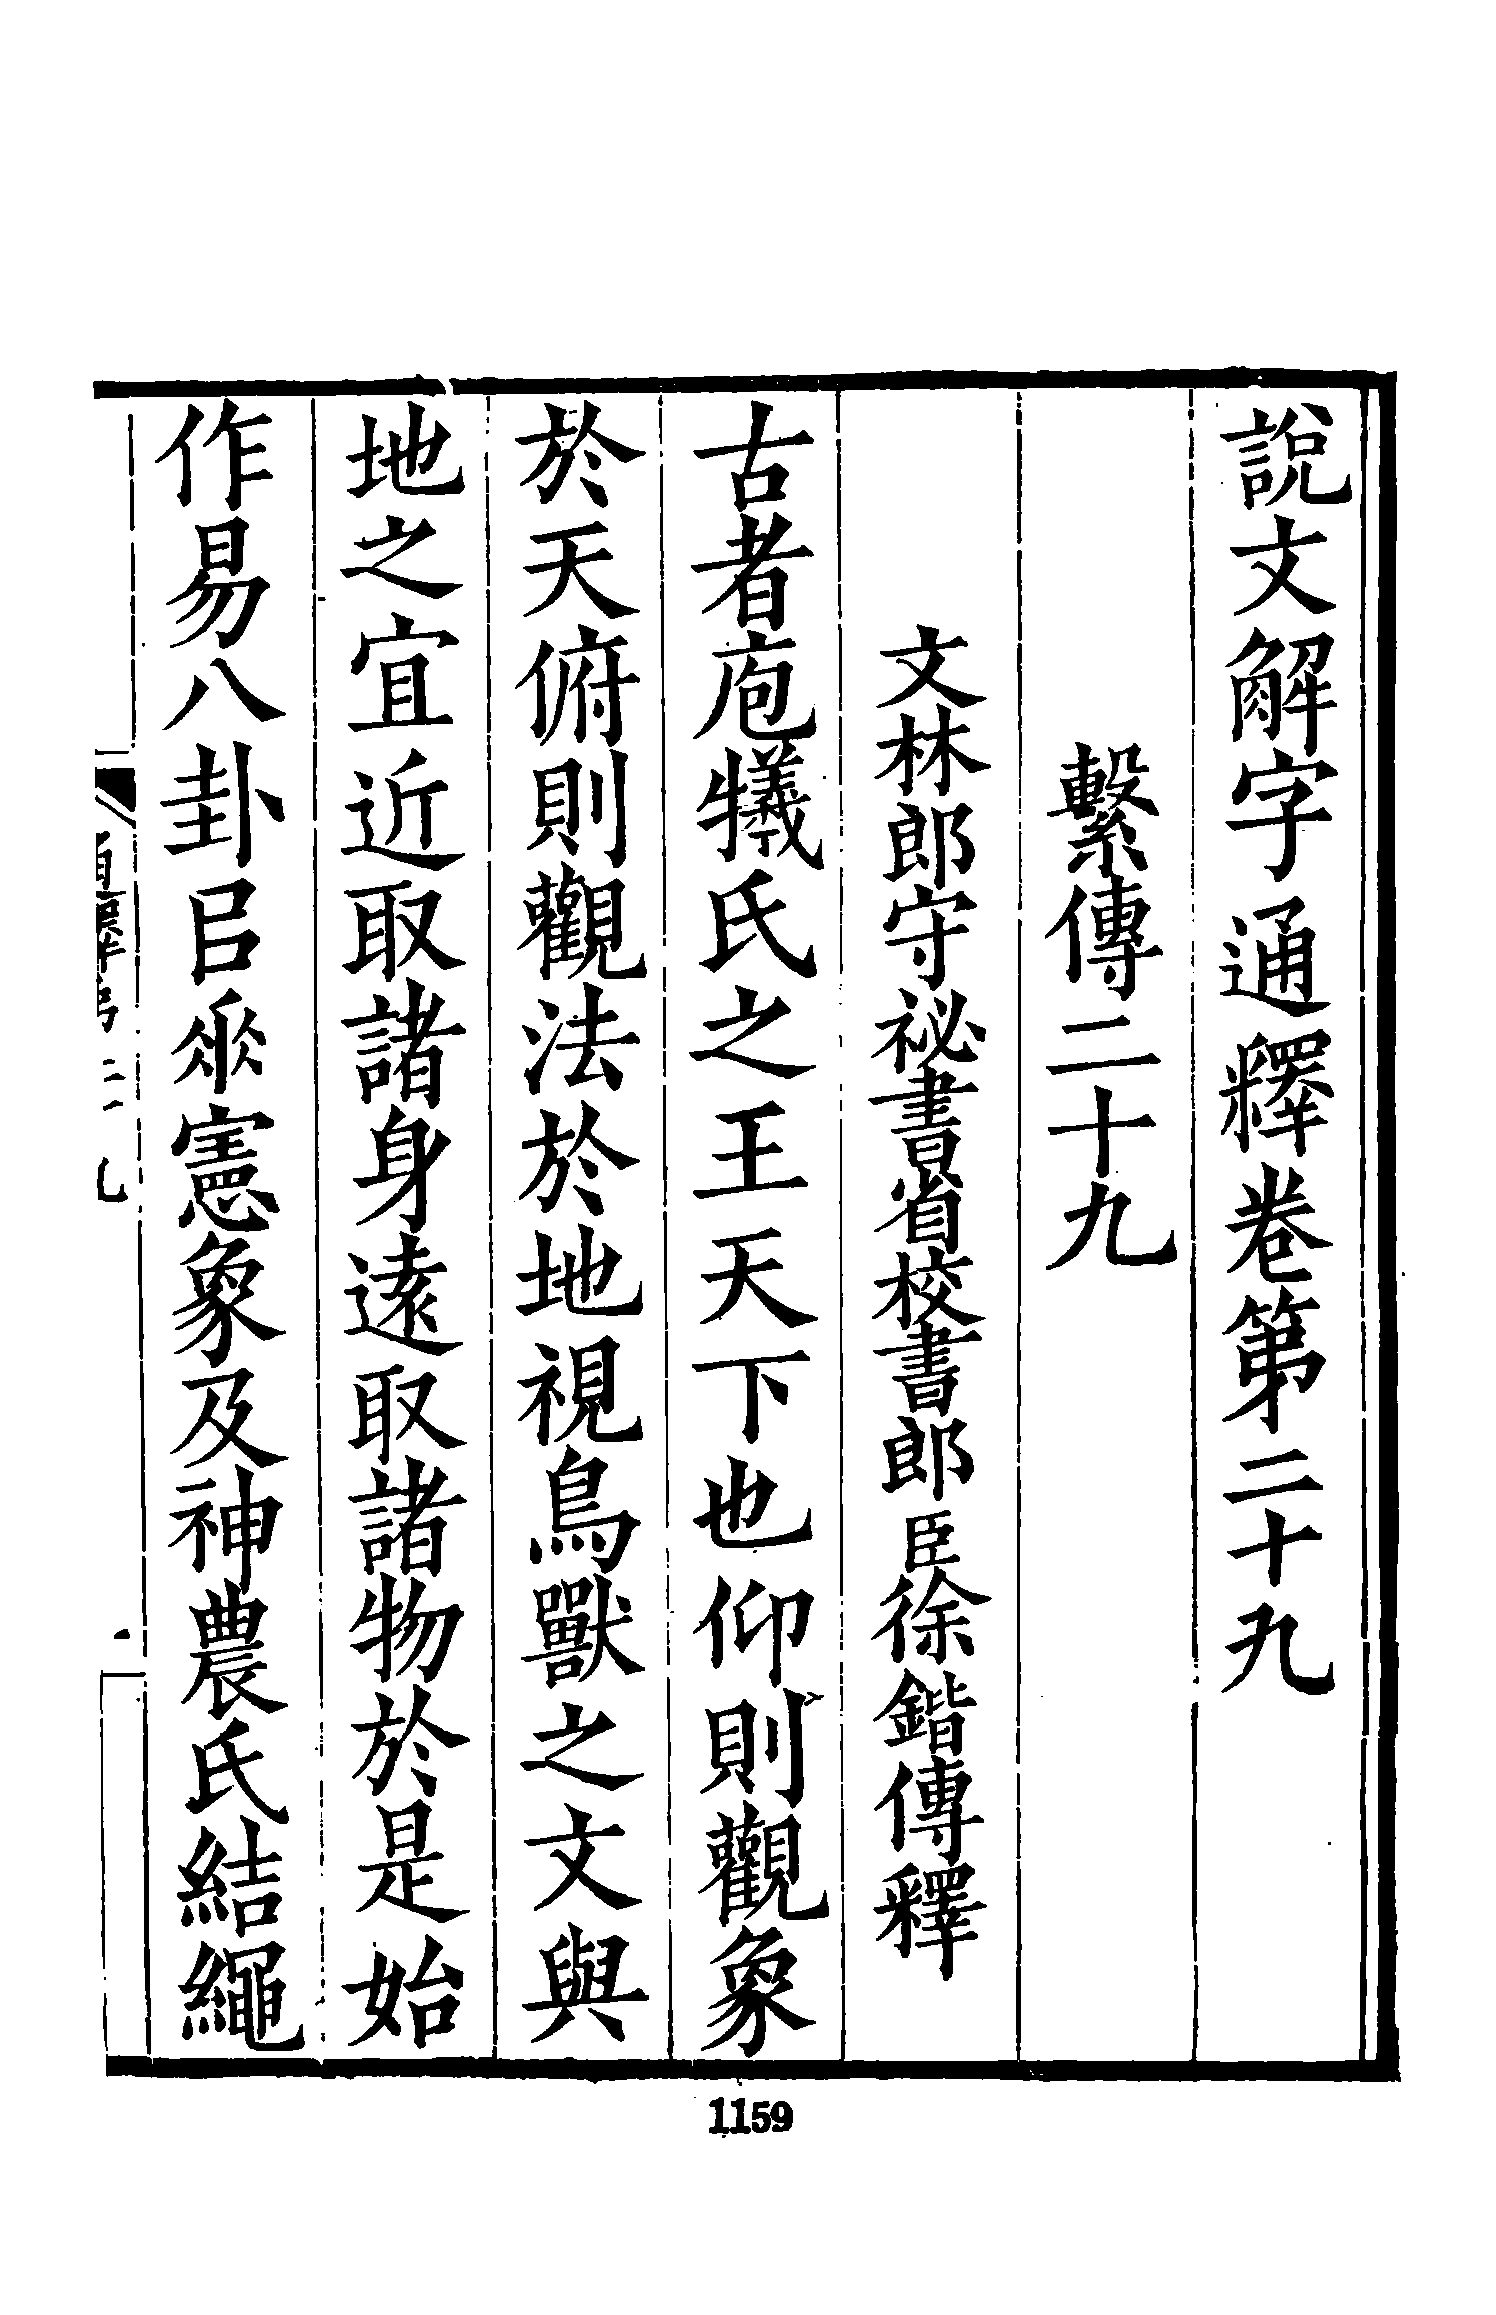 說文解字通釋卷第二十九
繫傳二十九
文林郎守祕書省校書郎臣徐鍇傳釋
古者庖犧氏之王天下也仰則觀象
於天俯則觀法於地視鳥獸之文與
地之宜近取諸身遠取諸物於是始
作易八卦㠯𠂹憲象及神農氏結繩
1159